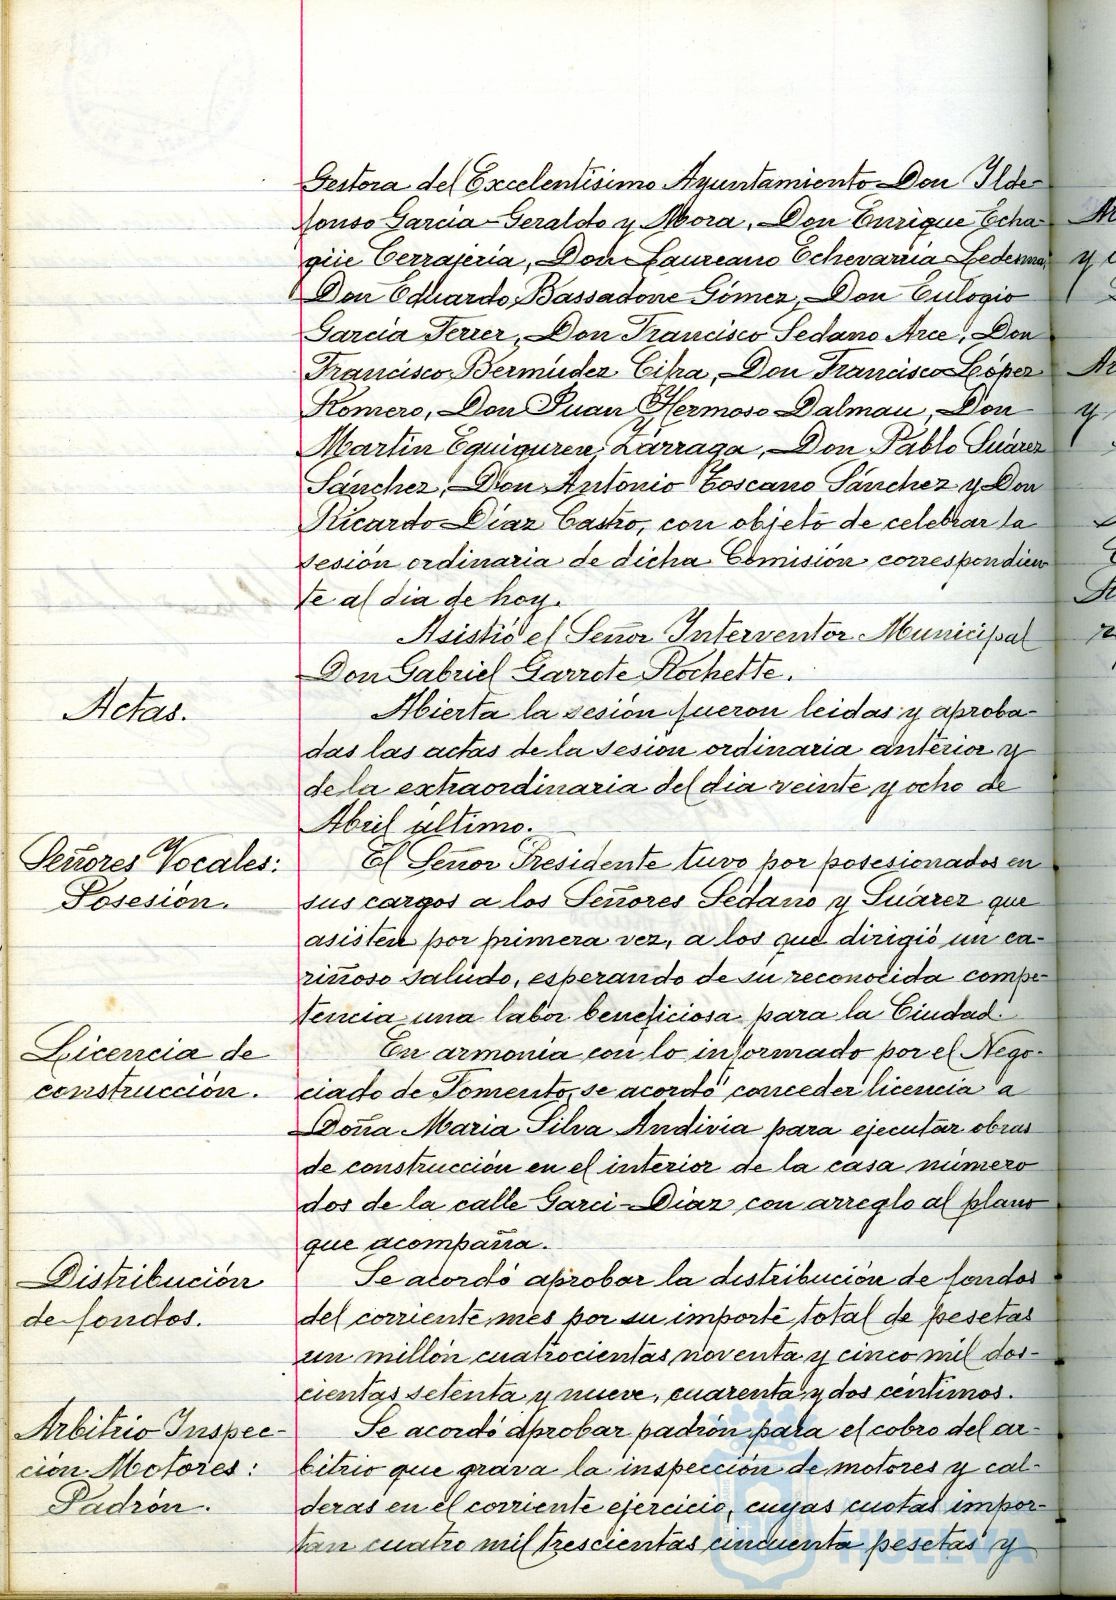 Gestora del Excelentísimo Ayuntamiento Don Ilde-
fonso García-Geraldo y Mora, Don Enrique Echa-
güe Cerrajería, Don Laureano Echevarría Ledesma,
Don Eduardo Bassadone Gómez, Don Eulogio
García Ferrer, Don Francisco Sedano Arce, Don
Francisco Bermúdez Ciba, Don Francisco López
Romero, Don Juan Hermoso Dalmau, Don
Martín Eguiguren Zárraga, Don Pablo Suárez
Sánchez, Don Antonio Toscano Sánchez y Don
Ricardo Díaz Castro, con objeto de celebrar la
sesión ordinaria de dicha Comisión correspondien
te al dia de hoy.
Asistió el Señor Interventor Municipal
Don Gabriel Garrote Rochette.
Actas.
Abierta la sesión fueron leidas y aproba-
das las actas de la sesión ordinaria anterior y
de la extraordinaria del dia veinte y ocho de
Abril último.
Señores Vocales:
Posesión.
El Señor Presidente tuvo por posesionados en
sus cargos a los Señores Sedano y Suárez que
asisten por primera vez, a los que dirigió un ca-
riñoso saludo, esperando de su reconocida compe-
tencia una labor beneficiosa para la Ciudad.
Licencia de
construcción.
En armonía con lo informado por el Nego-
ciado de Fomento, se acordó conceder licencia a
Doña Maria Silva Andivia para ejecutar obras
de construcción en el interior de la casa número
dos de la calle Garci-Diaz con arreglo al plano
que acompaña.
Distribución
de fondos.
Se acordó aprobar la distribución de fondos
del corriente mes por su importe total de pesetas
un millón cuatrocientas noventa y cinco mil dos-
cientas setenta y nueve, cuarenta y dos céntimos.
Arbitrio Inspec-
ción Motores:
Padrón.
Se acordó aprobar padrón para el cobro del ar-
bitrio que grava la inspección de motores y cal-
deras en el corriente ejercicio, cuyas cuotas impor-
tan cuatro mil trescientas cincuenta pesetas y
HUELVA